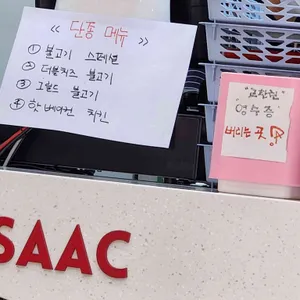 << 단종 메뉴 >>
① 불고기 스페셜
② 더블치즈 불고기
③ 그릴드 불고기
④ 핫 베이컨 치킨
"교환된"
영수증
버리는 곳!
SAAC